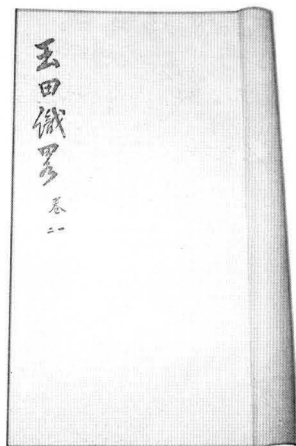 玉田識畧
卷
一
二